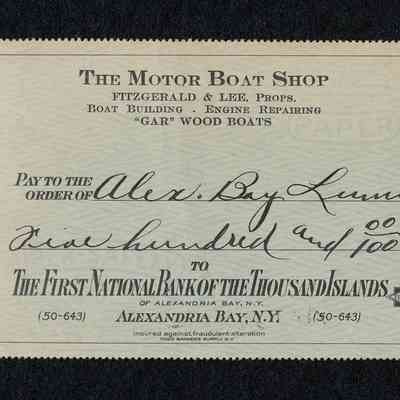 THE MOTOR BOAT SHOP
FITZGERALD & LEE, PROPS.
BOAT BUILDING - ENGINE REPAIRING
"GAR" WOOD BOATS
PAY TO THE
ORDER OF Alex. Bay Lum
Five hundred and 00/100
TO
THE FIRST NATIONAL BANK OF THE THOUSAND ISLANDS
OF ALEXANDRIA BAY, N.Y.
(50-643) ALEXANDRIA BAY, N.Y. (50-643)
insured against fraudulent alteration
TODD BANKERS SUPPLY N.Y.